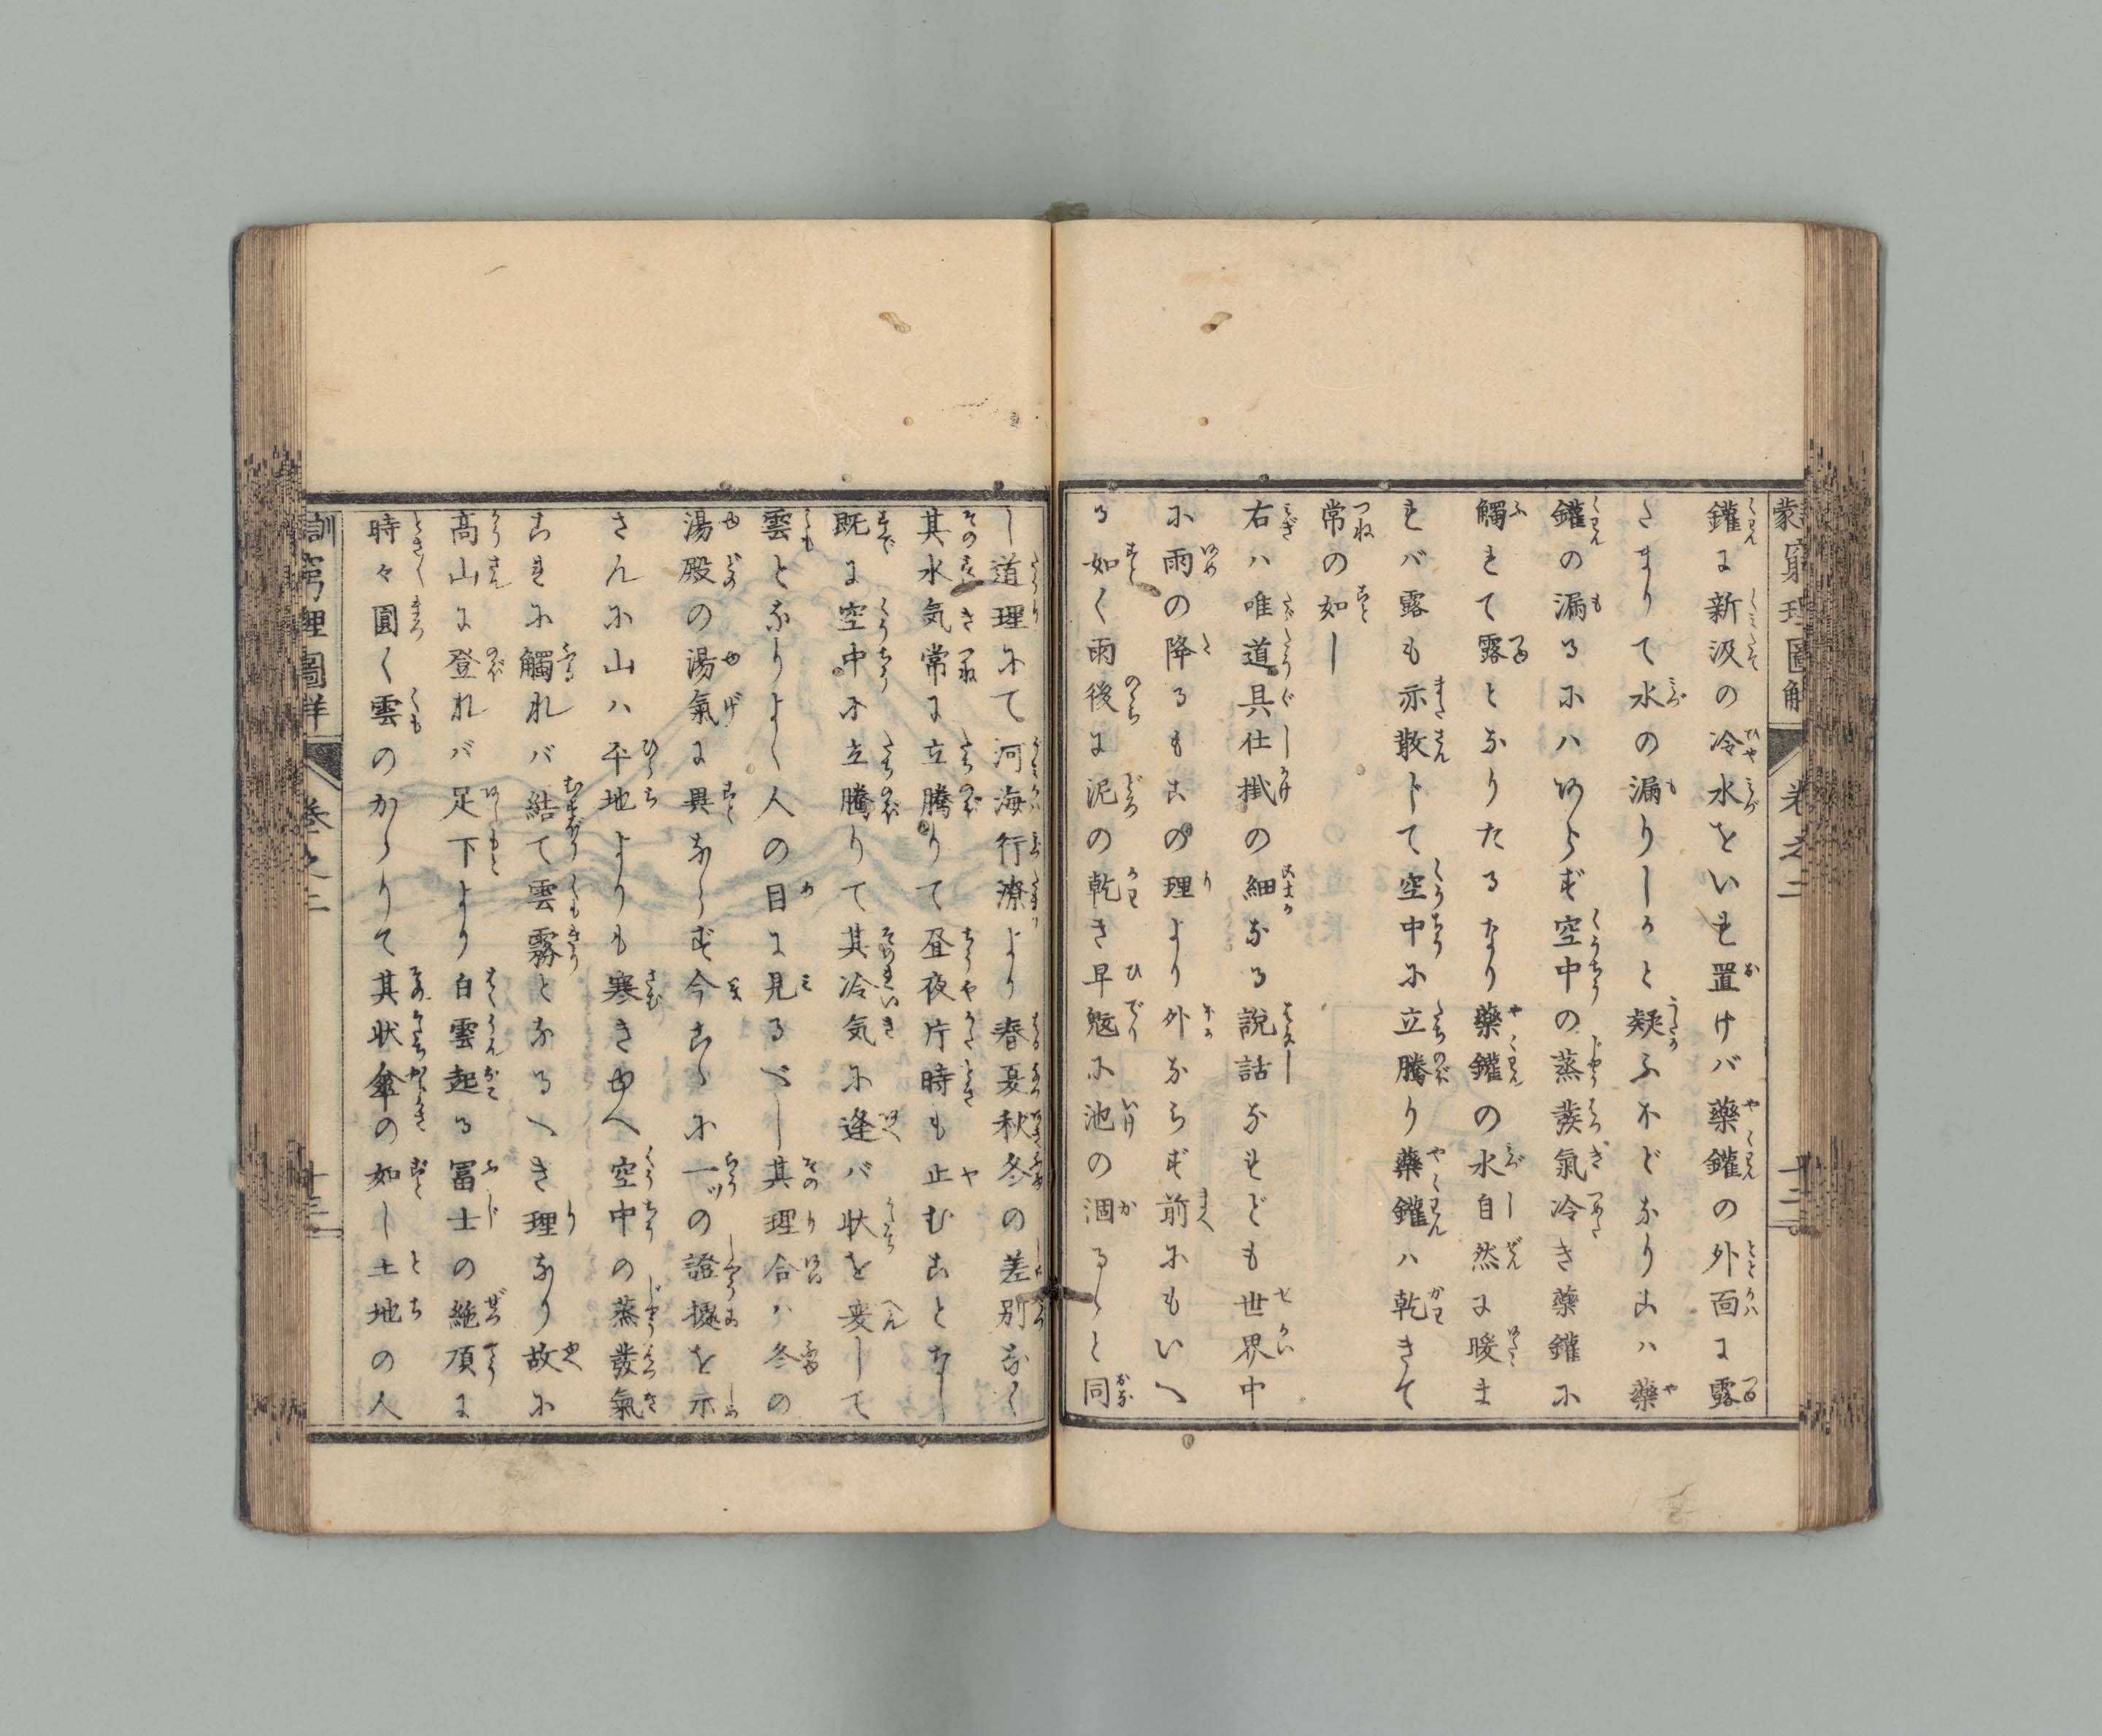 鑵に新汲の冷水をいれ置けバ藥鑵の外面に露
たまりて水の漏りしかと疑ふ不どなりこハ藥
鑵の漏るにハあらず空中の蒸發氣冷き藥鑵に
觸れて露となりたるなり藥鑵の水自然に暖ま
れバ露も亦散じて空中に立騰り藥鑵ハ乾きて
常の如し
右ハ唯道具仕掛の細なる説話なれども世界中
に雨の降るもこの理より外ならず前にもいへ
る如く雨後に泥の乾き旱魃に池の涸るゝと同
し道理にて河海行潦より春夏秋冬の差別なく
其水気常に立騰りて昼夜片時も止むことなし
既に空中に立騰りて其冷気に逢バ状を変して
雲となりよく人の目に見るべし其理合ハ冬の
湯殿の湯氣に異ならず今こゝに一ツの證據を示
さんに山ハ平地よりも寒きゆへ空中の蒸發氣
これに觸れバ結て雲霧となるへき理なり故に
高山に登れバ足下より白雲起る冨士の絶頂に
時々圓く雲のかゝりて其状傘の如し土地の人